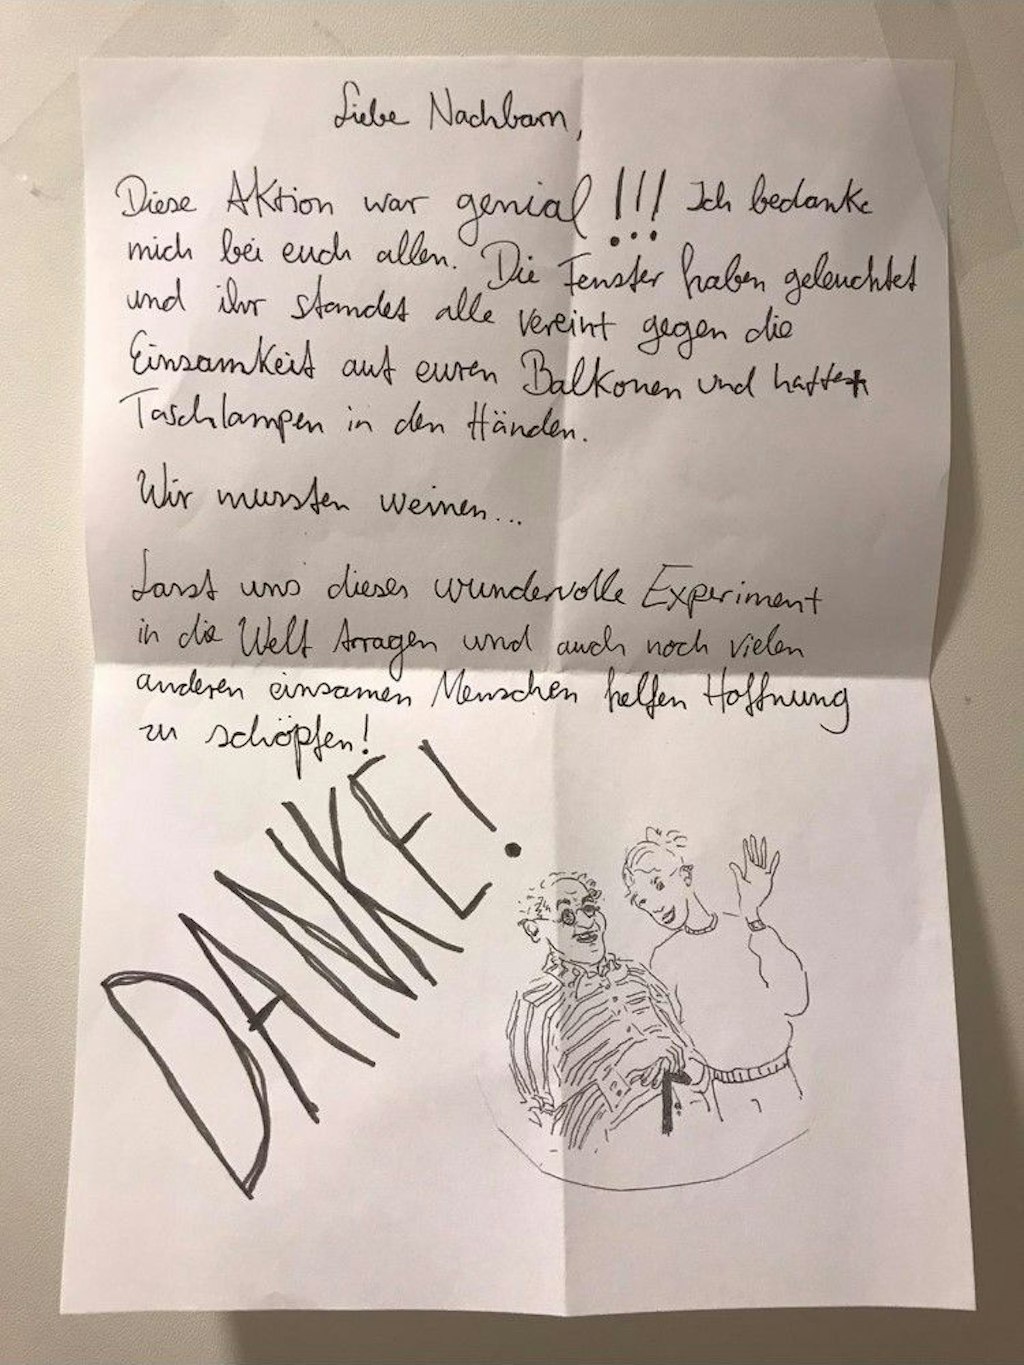 Liebe Nachbarn,
Diese Aktion war genial!!! Ich bedanke
mich bei euch allen. Die Fenster haben geleuchtet
und ihr standet alle vereint gegen die
Einsamkeit auf euren Balkonen und hattet
Taschlampen in den Händen.
Wir mussten weinen...
Lasst uns dieses wundervolle Experiment
in die Welt tragen und auch noch vielen
anderen einsamen Menschen helfen Hoffnung
zu schöpfen!
DANKE!